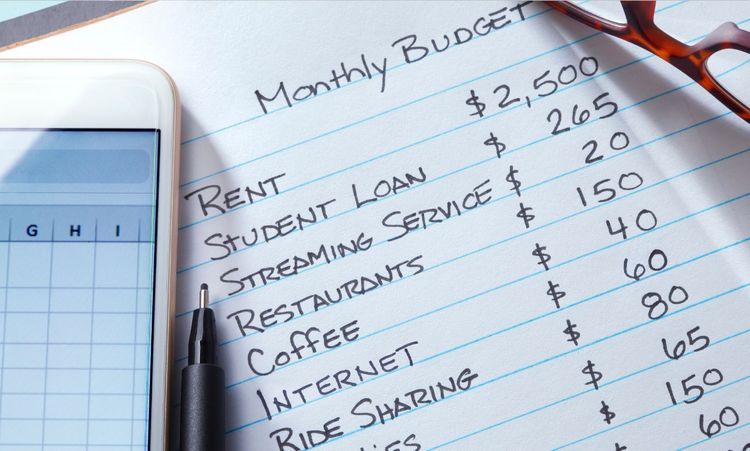 Monthly BUDGET
RENT $2,500
STUDENT LOAN $ 265
STREAMING SERVICE $ 20
RESTAURANTS $ 150
COFFEE $ 40
INTERNET $ 60
RIDE SHARING $ 80
$ 65
$ 150
60
G H I